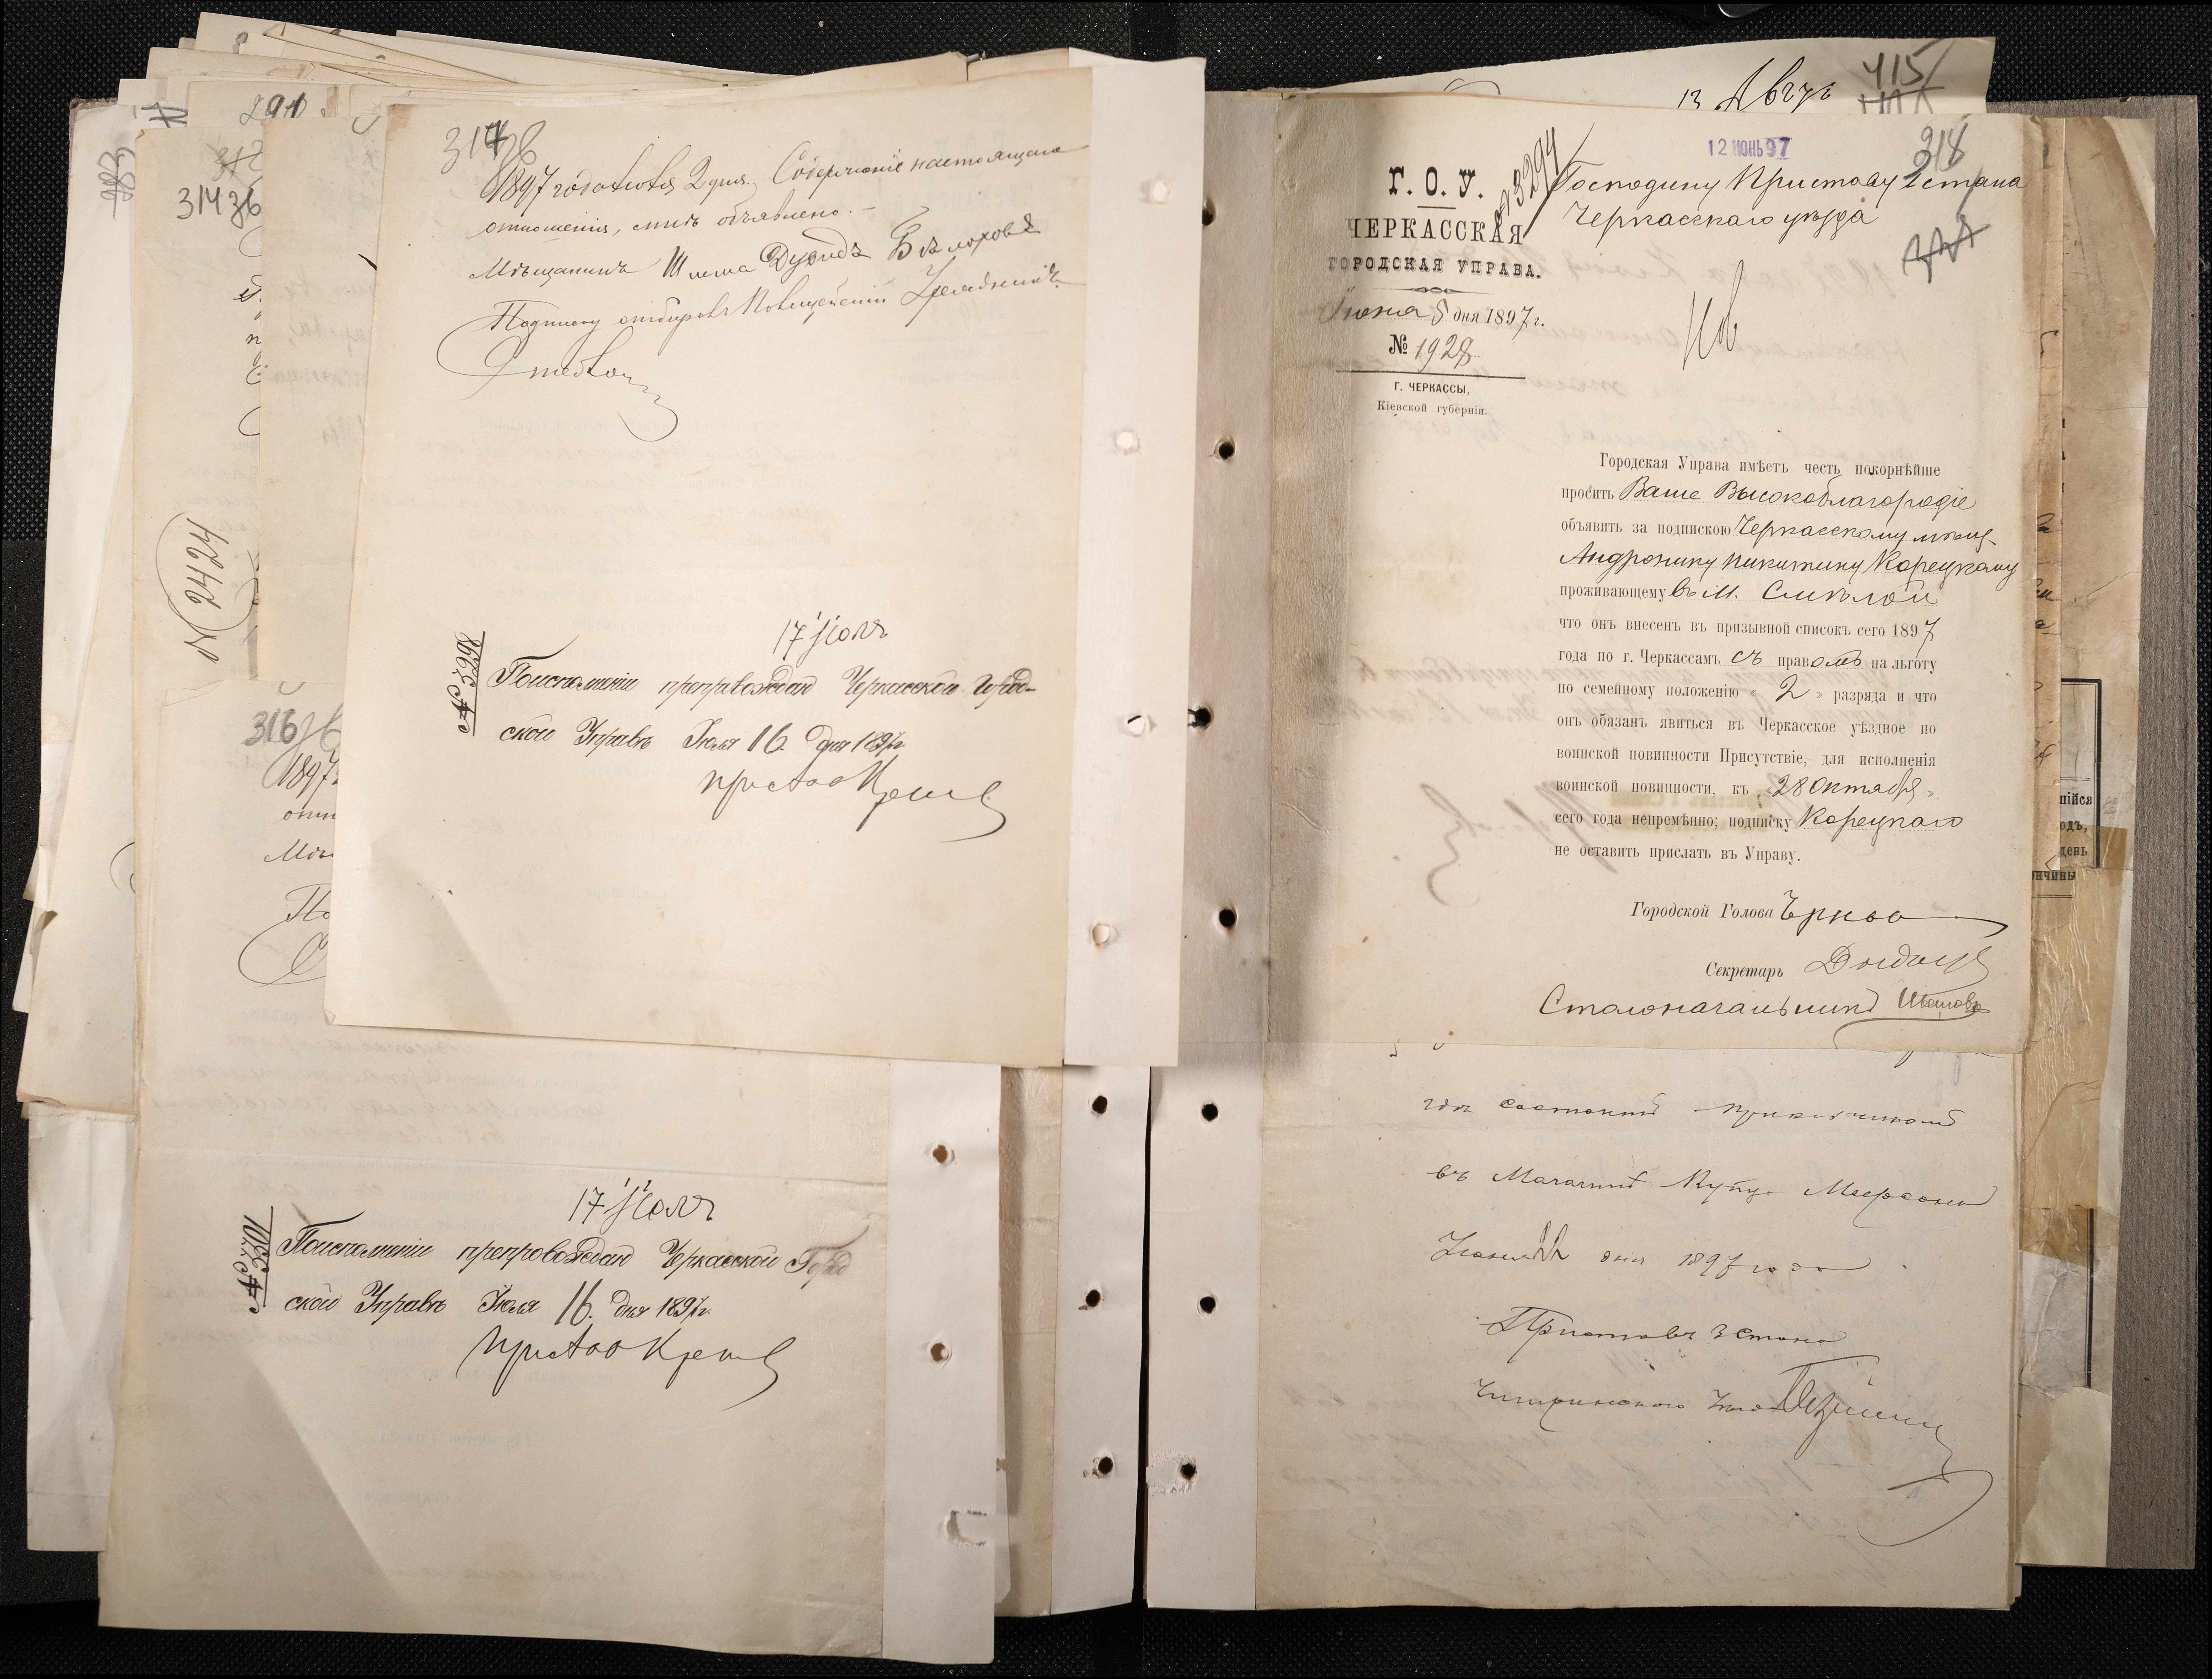 291
314 зв
№ 2424
316 зв
1897
317 зв
1897 года Июля 2 дня. Содержаніе настоящаго
отношенія, мнѣ объявлено.
Мѣщанинъ
Подписку отбиралъ Полицейскій Урядникъ
17 Іюля
№ 3298
По исполненіи препровождаю Черкасской Город-
ской Управѣ Іюля 16 дня 1897 г.
Приставъ
17 Іюля
№ 3301
По исполненіи препровождаю Черкасской Город
ской Управѣ Іюля 16. дня 1897 г.
Приставъ
13 Авгус
415
12 ИЮНЬ 97
318
№ 3294
Г. О. У.
ЧЕРКАССКАЯ
ГОРОДСКАЯ УПРАВА.
Іюня 5 дня 1897 г.
№ 1928
Г. ЧЕРКАССЫ,
Кіевской губерніи.
Господину Приставу 2 стана
Черкасскаго уѣзда
Городская Управа имѣетъ честь покорнѣйше
просить Ваше Высокоблагородіе
объявить за подпискою Черкасскому мѣщ.
Андронику Никитину Корецкому
проживающему въ м. Смѣлой
что онъ внесенъ въ призывной списокъ сего 1897
года по г. Черкассамъ съ правомъ на льготу
по семейному положенію 2 разряда и что
онъ обязанъ явиться въ Черкасское уѣздное по
воинской повинности Присутствіе, для исполненія
воинской повинности, къ 28 Октября
сего года непремѣнно; подписку Корецкаго
не оставить прислать въ Управу.
Городской Голова
Секретарь
Столоначальникъ Ивановъ
гдѣ состоитъ прикащикомъ
въ Магазинѣ Купца Меерсона
Іюня дня 1897 года
Приставъ 3 стана
Чигиринскаго уѣзда